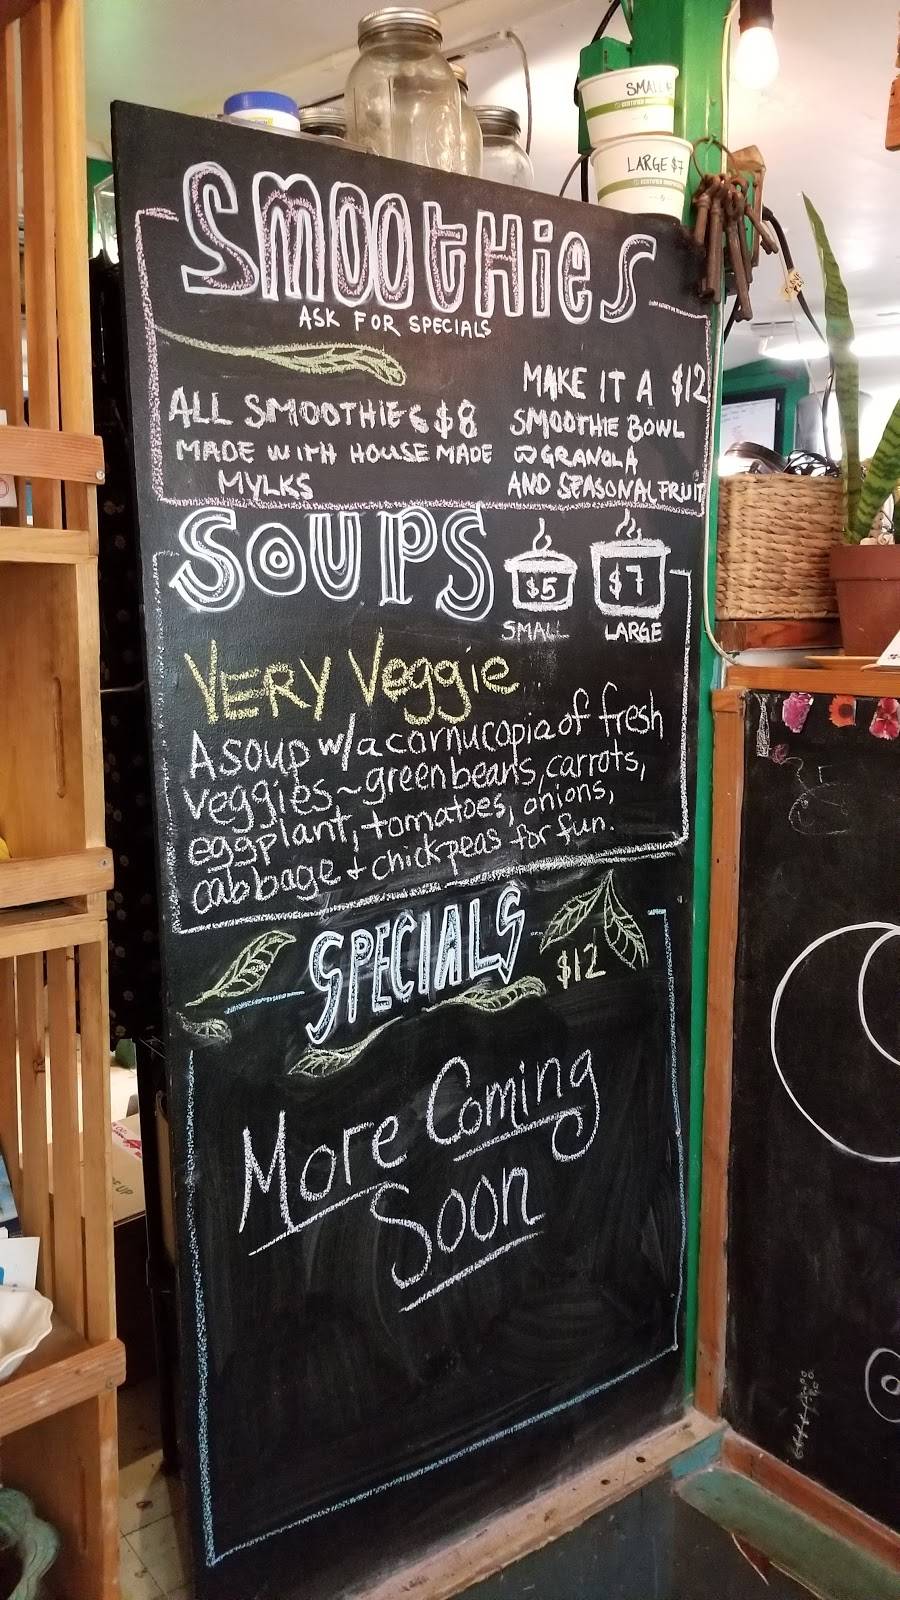 SMALL
LARGE $7
SMOOTHiES
ASK FOR SPECIALS
ALL SMOOTHIES $8
MADE WITH HOUSE MADE
MYLKS
MAKE IT A $12
SMOOTHIE BOWL
W GRANOLA
AND SEASONAL FRUIT
SOUPS
$5
SMALL
$7
LARGE
VERY Veggie
A soup w/a cornucopia of fresh
veggies ~ green beans, carrots,
eggplant, tomatoes, onions,
cabbage + chickpeas for fun.
SPECIALS
$12
More Coming
Soon